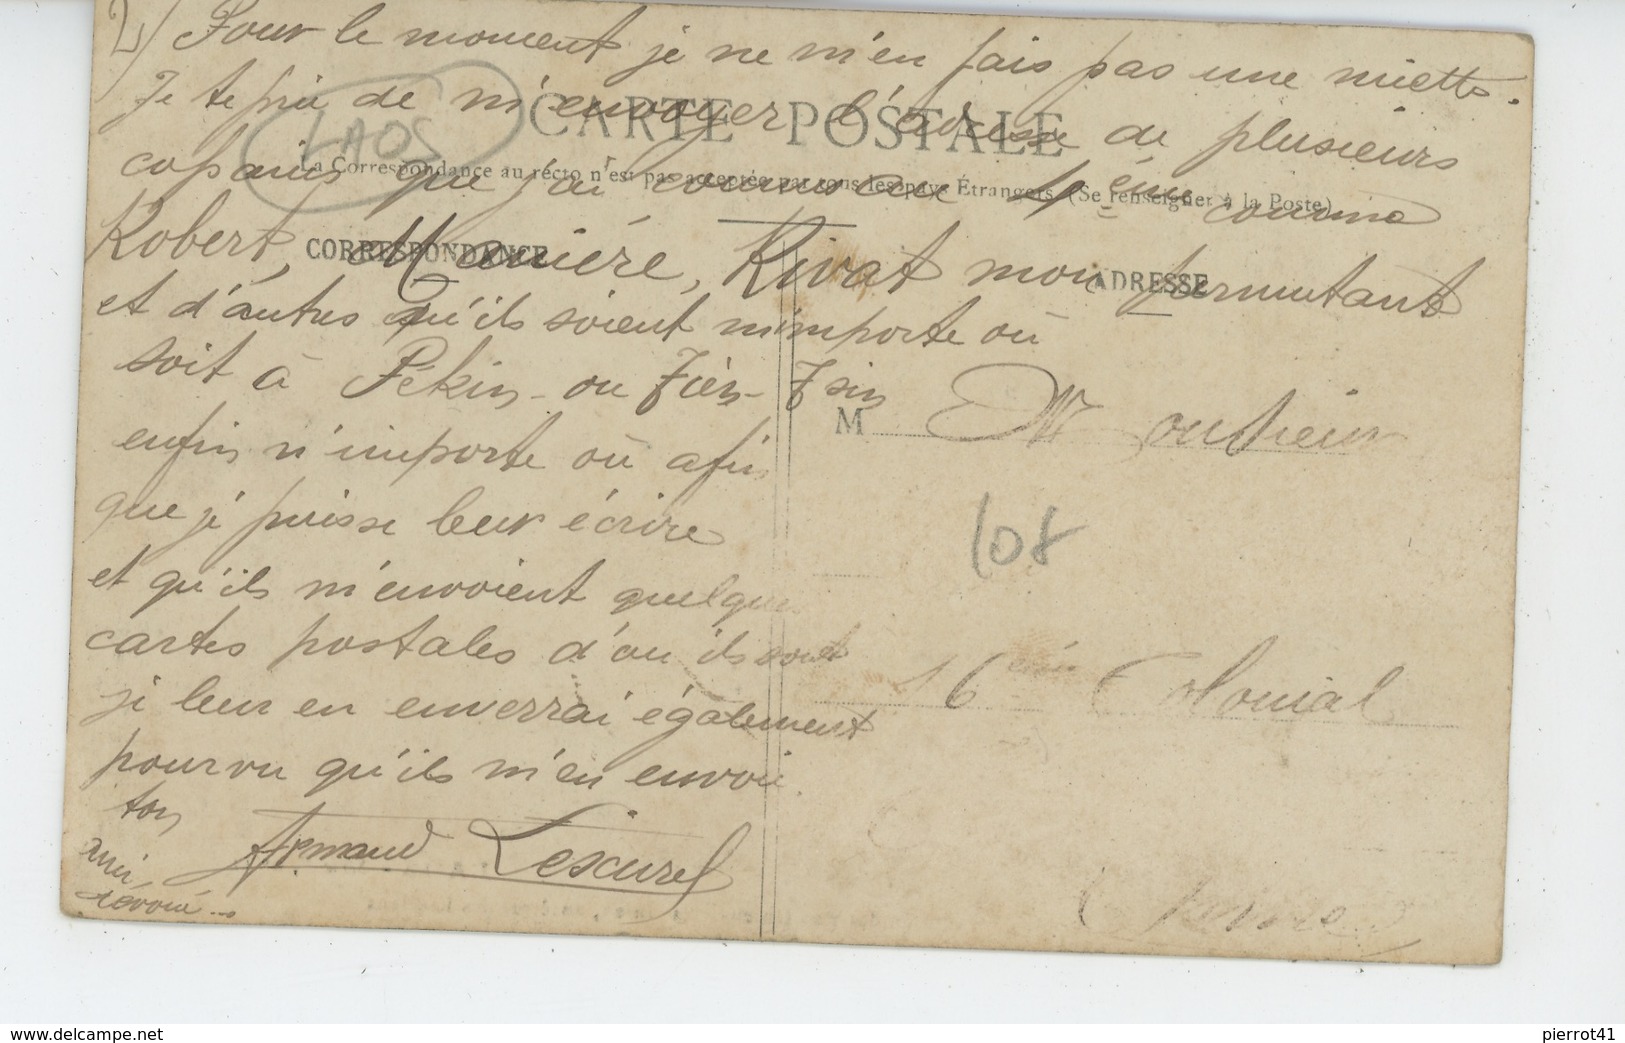 2) Pour le moment je ne m'en fais pas une miette.
Je te prie de m'envoyer l'adresse de plusieurs
copains que j'ai connus au 4ème comme
Robert, Manière, Rivat mon permutant
et d'autres qu'ils soient n'importe où
soit à Pékin - ou Tien-Tsin
enfin n'importe où afin
que je puisse leur écrire
et qu'ils m'envoient quelques
cartes postales d'où ils sont
je leur en enverrai également
pourvu qu'ils m'en envoi.
ton
ami
dévoué...
Armand Lescurel
LAOS
CARTE POSTALE
La Correspondance au recto n'est pas acceptée par tous les pays Étrangers (Se renseigner à la Poste)
CORRESPONDANCE
ADRESSE
M
108
16ème Colonial
Chine
delcampe.net
pierrot41